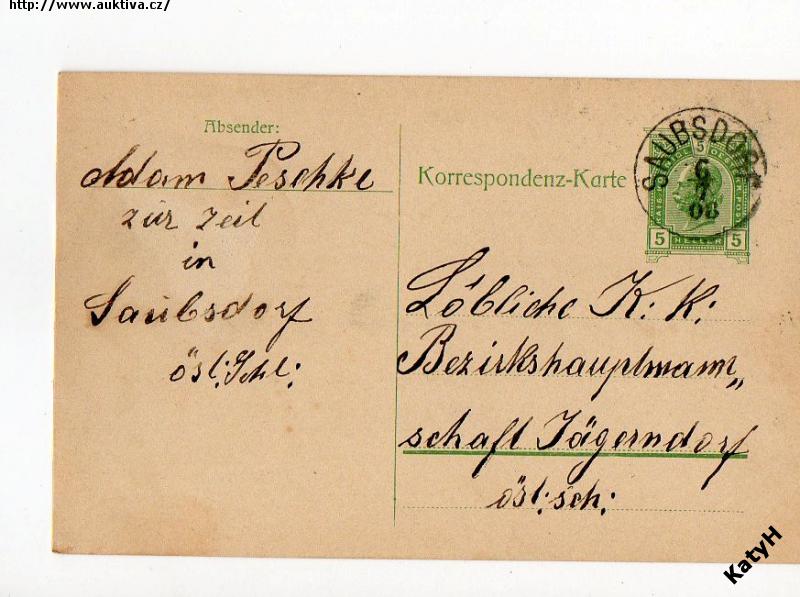 http://www.auktiva.cz/
Absender:
Adam Peschke
zür zeit
in
Saubsdorf
öst: Schl:
Korrespondenz-Karte
SAUBSDORF
6
7
08
5
5 HELLER 5
Löbliche K: K:
Bezirkshauptmann„
schaft Jägerndorf
öst: sch:
KatyH